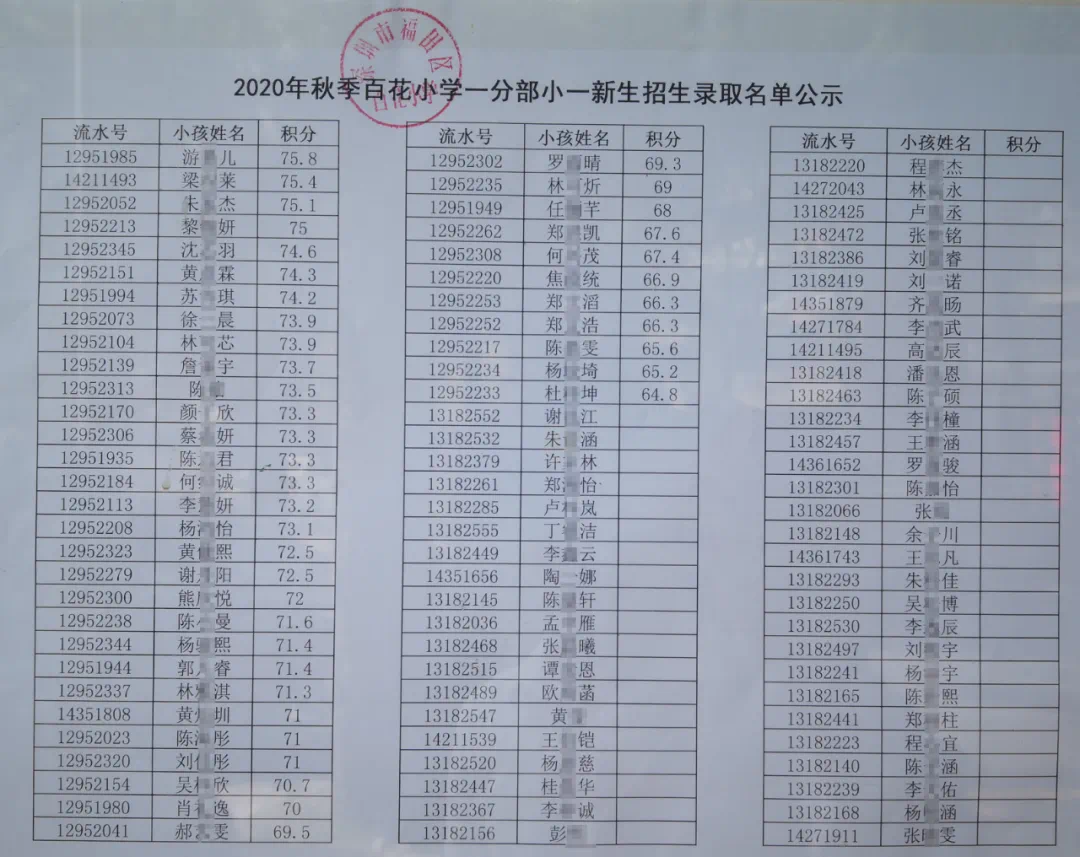 深圳市福田区
百花小学
2020年秋季百花小学一分部小一新生招生录取名单公示
流水号 小孩姓名 积分
12951985 游 儿 75.8
14211493 梁 莱 75.4
12952052 朱 杰 75.1
12952213 黎 妍 75
12952345 沈 羽 74.6
12952151 黄 霖 74.3
12951994 苏 琪 74.2
12952073 徐 晨 73.9
12952104 林 芯 73.9
12952139 詹 宇 73.7
12952313 陈 73.5
12952170 颜 欣 73.3
12952306 蔡 妍 73.3
12951935 陈 君 73.3
12952184 何 诚 73.3
12952113 李 妍 73.2
12952208 杨 怡 73.1
12952323 黄 熙 72.5
12952279 谢 阳 72.5
12952300 熊 悦 72
12952238 陈 曼 71.6
12952344 杨 熙 71.4
12951944 郭 睿 71.4
12952337 林 淇 71.3
14351808 黄 圳 71
12952023 陈 彤 71
12952320 刘 彤 71
12952154 吴 欣 70.7
12951980 肖 逸 70
12952041 郝 雯 69.5
流水号 小孩姓名 积分
12952302 罗 晴 69.3
12952235 林 炘 69
12951949 任 芊 68
12952262 郑 凯 67.6
12952308 何 茂 67.4
12952220 焦 统 66.9
12952253 郑 滔 66.3
12952252 郑 浩 66.3
12952217 陈 雯 65.6
12952234 杨 埼 65.2
12952233 杜 坤 64.8
13182552 谢 江
13182532 朱 涵
13182379 许 林
13182261 郑 怡
13182285 卢 岚
13182555 丁 洁
13182449 李 云
14351656 陶 娜
13182145 陈 轩
13182036 孟 雁
13182468 张 曦
13182515 谭 恩
13182489 欧 菡
13182547 黄
14211539 王 铠
13182520 杨 慈
13182447 桂 华
13182367 李 诚
13182156 彭
流水号 小孩姓名 积分
13182220 程 杰
14272043 林 永
13182425 卢 丞
13182472 张 铭
13182386 刘 睿
13182419 刘 诺
14351879 齐 旸
14271784 李 武
14211495 高 辰
13182418 潘 恩
13182463 陈 硕
13182234 李 橦
13182457 王 涵
14361652 罗 骏
13182301 陈 怡
13182066 张
13182148 余 川
14361743 王 凡
13182293 朱 佳
13182250 吴 博
13182530 李 辰
13182497 刘 宇
13182241 杨 宇
13182165 陈 熙
13182441 郑 柱
13182223 程 宜
13182140 陈 涵
13182239 李 佑
13182168 杨 涵
14271911 张 雯